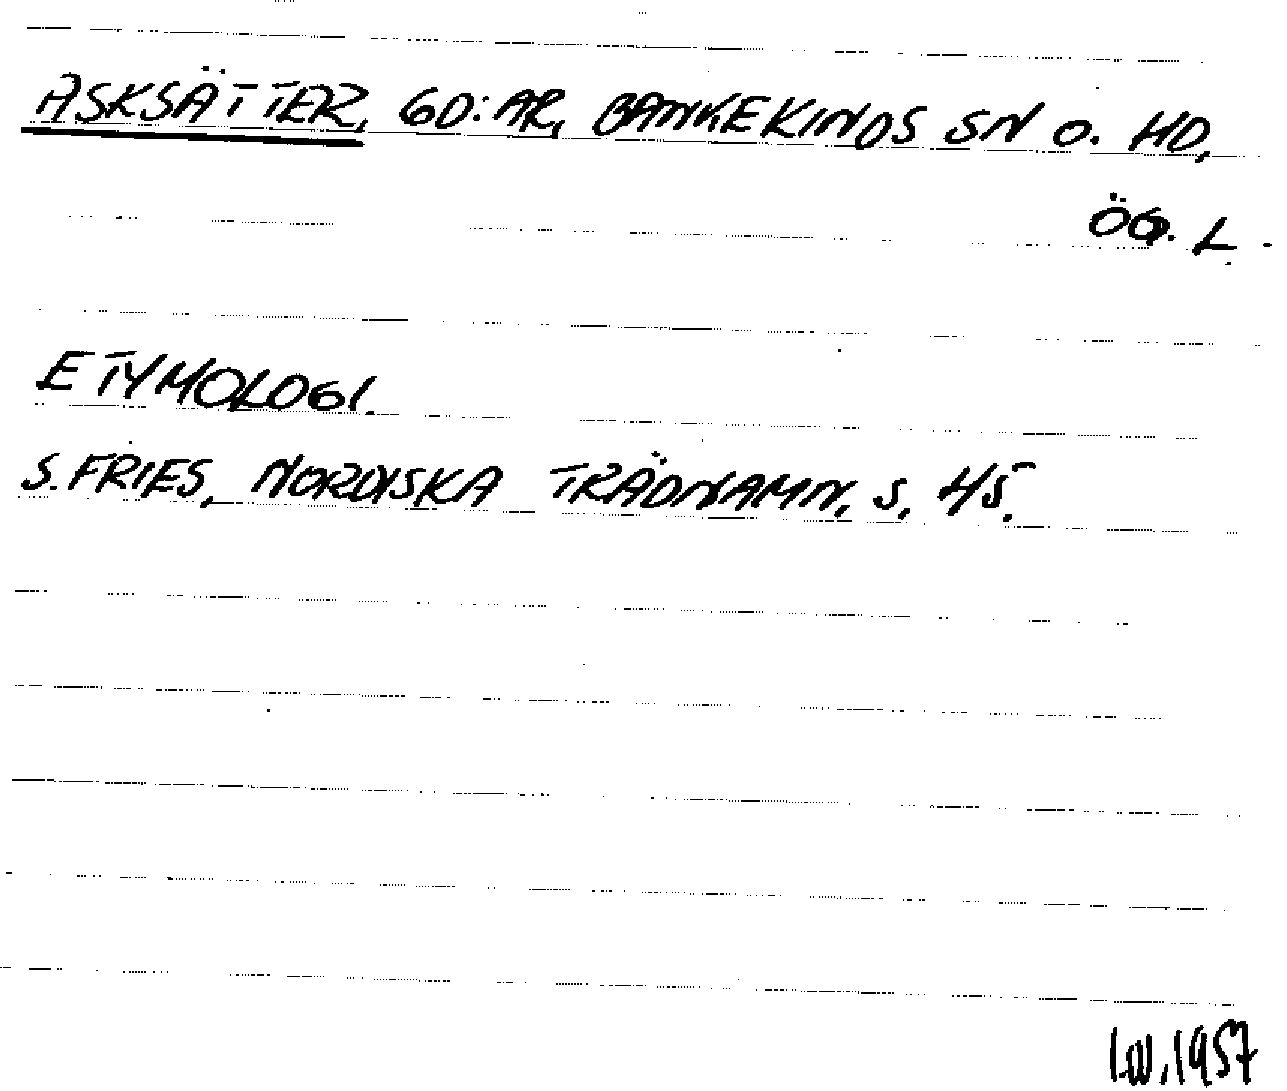 ASKSÄTTER, GD:AR, BANKEKINDS SN O. HD,
ÖG. L.
ETYMOLOGI.
S. FRIES, NORDISKA TRÄDNAMN, S, 45.
I.W, 1957